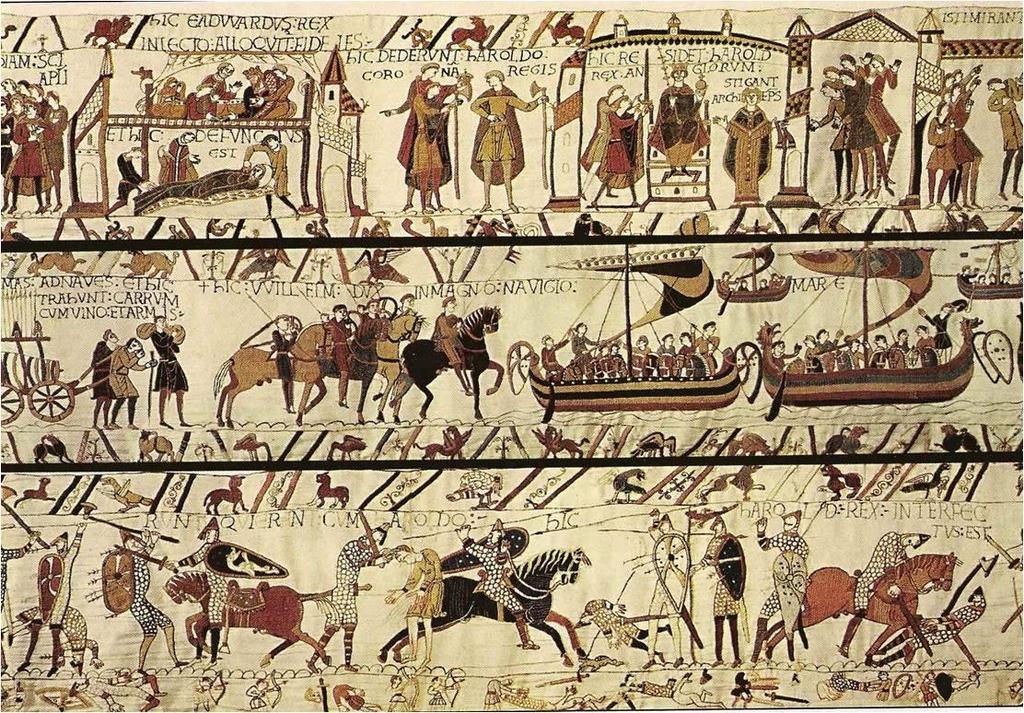 HIC EADVVARDVS: REX
IN LECTO: ALLOQVIT: FIDELES:
IAM: SCI
APLI
ET HIC: DEFVNCTVS
EST
HIC DEDERVNT: HAROLDO:
CORONA: REGIS
HIC RE
SIDET: HAROLD
REX: ANGLORVM:
STIGANT
ARCHIEPS
ISTI MIRANT
MAS: AD NAVES: ET HIC
TRAHVNT: CARRVM
CVM VINO: ET ARMIS:
†HIC: VVILLELM: DVX IN MAGNO: NAVIGIO:
MARE
RVNT QVI ERANT CVM HAROLDO:
HIC HAROLD: REX: INTERFEC
TVS: EST